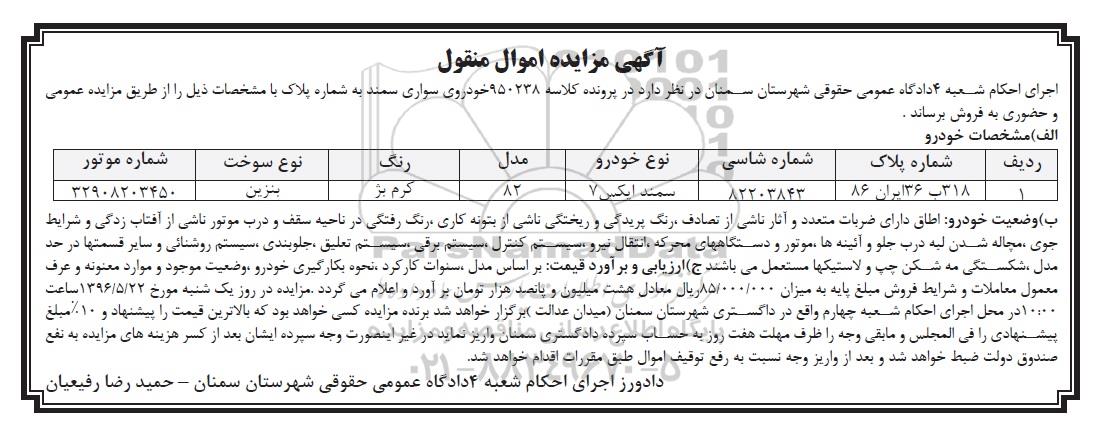 آگهی مزایده اموال منقول
اجرای احکام شعبه ۴دادگاه عمومی حقوقی شهرستان سمنان در نظر دارد در پرونده کلاسه ۹۵۰۲۳۸خودروی سواری سمند به شماره پلاک با مشخصات ذیل را از طریق مزایده عمومی
و حضوری به فروش برساند .
الف)مشخصات خودرو
ردیف شماره پلاک شماره شاسی نوع خودرو مدل رنگ نوع سوخت شماره موتور
۱ ۳۱۸ب ۳۶ایران ۸۶ ۸۲۲۰۳۸۴۳ سمند ایکس۷ ۸۲ کرم بژ بنزین ۳۲۹۰۸۲۰۳۴۵۰
ب)وضعیت خودرو: اطاق دارای ضربات متعدد و آثار ناشی از تصادف ،رنگ پریدگی و ریختگی ناشی از بتونه کاری ،رنگ رفتگی در ناحیه سقف و درب موتور ناشی از آفتاب زدگی و شرایط
جوی ،مچاله شدن لبه درب جلو و آئینه ها ،موتور و دستگاههای محرکه ،انتقال نیرو ،سیستم کنترل ،سیستم برقی ،سیستم تعلیق ،جلوبندی ،سیستم روشنائی و سایر قسمتها در حد
مدل ،شکستگی مه شکن چپ و لاستیکها مستعمل می باشند ج)ارزیابی و برآورد قیمت: بر اساس مدل ،سنوات کارکرد ،نحوه بکارگیری خودرو ،وضعیت موجود و موارد معنونه و عرف
معمول معاملات و شرایط فروش مبلغ پایه به میزان ۸۵/۰۰۰/۰۰۰ریال معادل هشت میلیون و پانصد هزار تومان بر آورد و اعلام می گردد .مزایده در روز یک شنبه مورخ ۱۳۹۶/۵/۲۲ساعت
۱۰:۰۰در محل اجرای احکام شعبه چهارم واقع در داگستری شهرستان سمنان (میدان عدالت )برگزار خواهد شد برنده مزایده کسی خواهد بود که بالاترین قیمت را پیشنهاد و ۱۰٪مبلغ
پیشنهادی را فی المجلس و مابقی وجه را ظرف مهلت هفت روز به حساب سپرده دادگستری سمنان واریز نماید در غیر اینصورت وجه سپرده ایشان بعد از کسر هزینه های مزایده به نفع
صندوق دولت ضبط خواهد شد و بعد از واریز وجه نسبت به رفع توقیف اموال طبق مقررات اقدام خواهد شد.
دادورز اجرای احکام شعبه ۴دادگاه عمومی حقوقی شهرستان سمنان – حمید رضا رفیعیان
ParsNamadData
۰۲۱-۸۸۳۴۹۶۷۰-۵